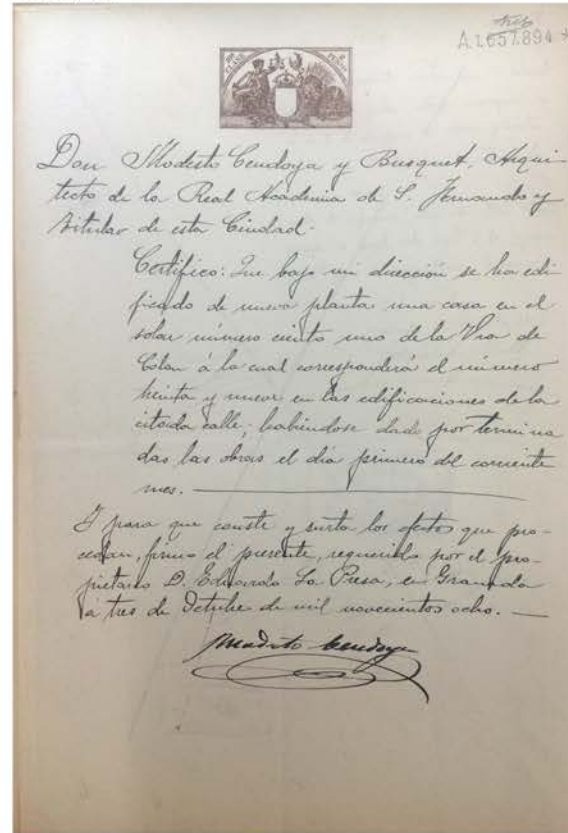 tres
A.1.657.894 *
CLASE
PESETAS
Don Modesto Cendoya y Busquet, Arqui-
tecto de la Real Academia de S. Fernando y
titular de esta Ciudad.
Certifico: Que bajo mi dirección se ha edi-
ficado de nueva planta una casa en el
solar número ciento uno de la Via de
Colon á la cual corresponderá el número
treinta y nueve en las edificaciones de la
citada calle; habiendose dado por termina
das las obras el dia primero del corriente
mes.
Y para que conste y surta los efectos que pro-
cedan, firmo el presente, requerido por el pro-
pietario D. Eduardo La Presa, en Granada
a tres de Octubre de mil novecientos ocho.
Modesto Cendoya